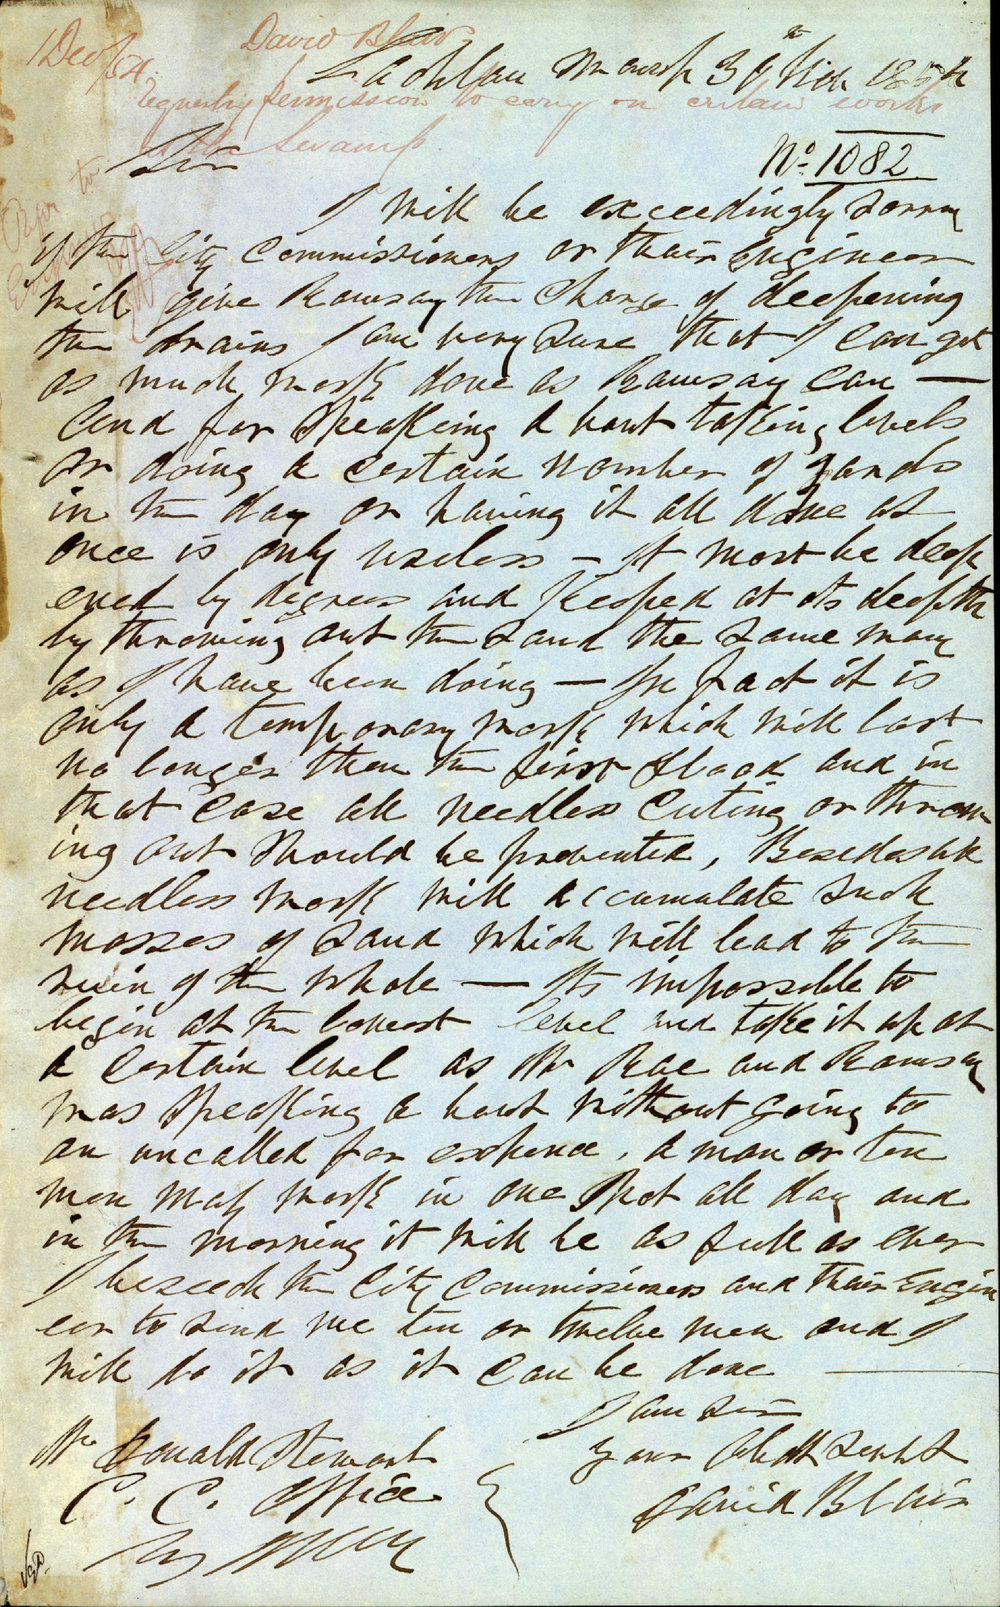 1 Dec/54.
David Blair
Requestg permission to carry on certain works
at the Swamp.
Lachlan Swamp 30th Nov 1854
No. 1082
Sir
I will be exceedingly sorry
if the City Commissioners or thair Engineer
will give Ramsay the Charge of deepening
the drains I am very sure that I can get
as much work done as Ramsay can —
and for speaking a bout taking levels
or doing a certain number of yards
in the day or having it all done at
once is only useless — it most be deep
ened by degrees and keeped at its deepth
by throwing out the sand the same way
as I have been doing — In fact it is
only a temporary work which will last
no longer than the first flood and in
that case all needless cuting or throw
ing out should be prevented, Besedes all
needless work will accumulate such
masses of sand which will lead to the
ruin of the whole — Its impossible to
begin at the lowest level and take it up at
a certain level as Mr Rae and Ramsay
was speaking a bout without going to
an uncalled for expence. a man or ten
men may work in one spot all day and
in the morning it will be as full as ever
I beseech the City Commissioners and thair Engin
eer to send me ten or twelve men and I
will do it as it can be done
I am Sir
Your Obdt Servt
David Blair
Mr Donald Stewart
C. C. Office